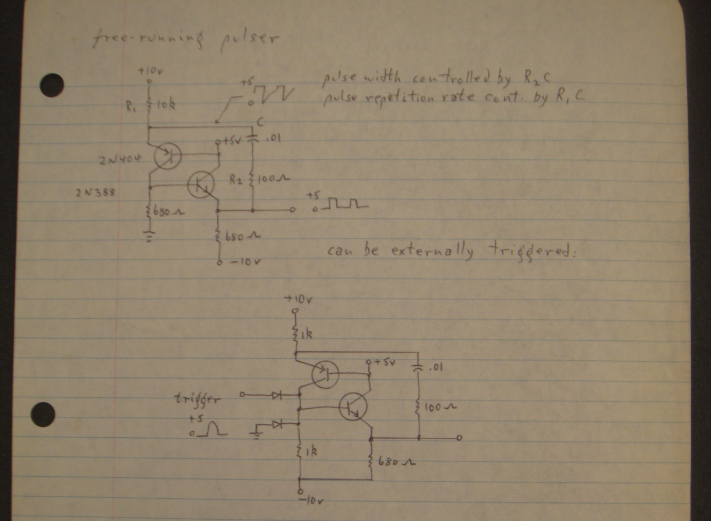 free-running pulser
+10v
pulse width controlled by R2C
+5
pulse repetition rate cont. by R1C
R1 10k
0
C
+5v .01
2N404
R2 100Ω
2N388
+5
0
680Ω
680Ω
-10v
can be externally triggered:
+10v
1k
+5v
.01
trigger
100Ω
+5
0
1k
680Ω
-10v